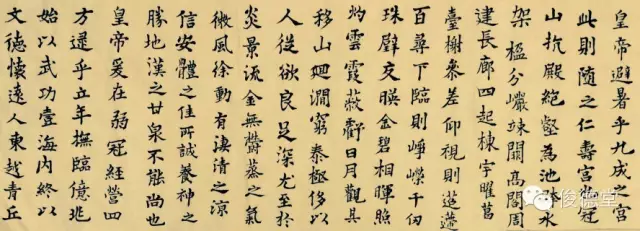 皇帝避暑乎九成之宫
此則随之仁壽宫也冠
山抗殿絶壑為池跨水
架楹分巗竦闕高閣周
建長廊四起棟宇膠葛
臺榭參差仰視則迢遰
百尋下臨則崢嶸千仞
珠璧交暎金碧相暉照
灼雲霞蔽虧日月觀其
移山廻澗窮泰極侈以
人從欲良足深尤至於
炎景流金無欝蒸之氣
微風徐動有凄清之凉
信安體之佳所誠養神之
勝地漢之甘泉不能尚也
皇帝爰在弱冠經營四
方逮乎立年撫臨億兆
始以武功壹海内終以
文德懷遠人東越青丘
俊德堂